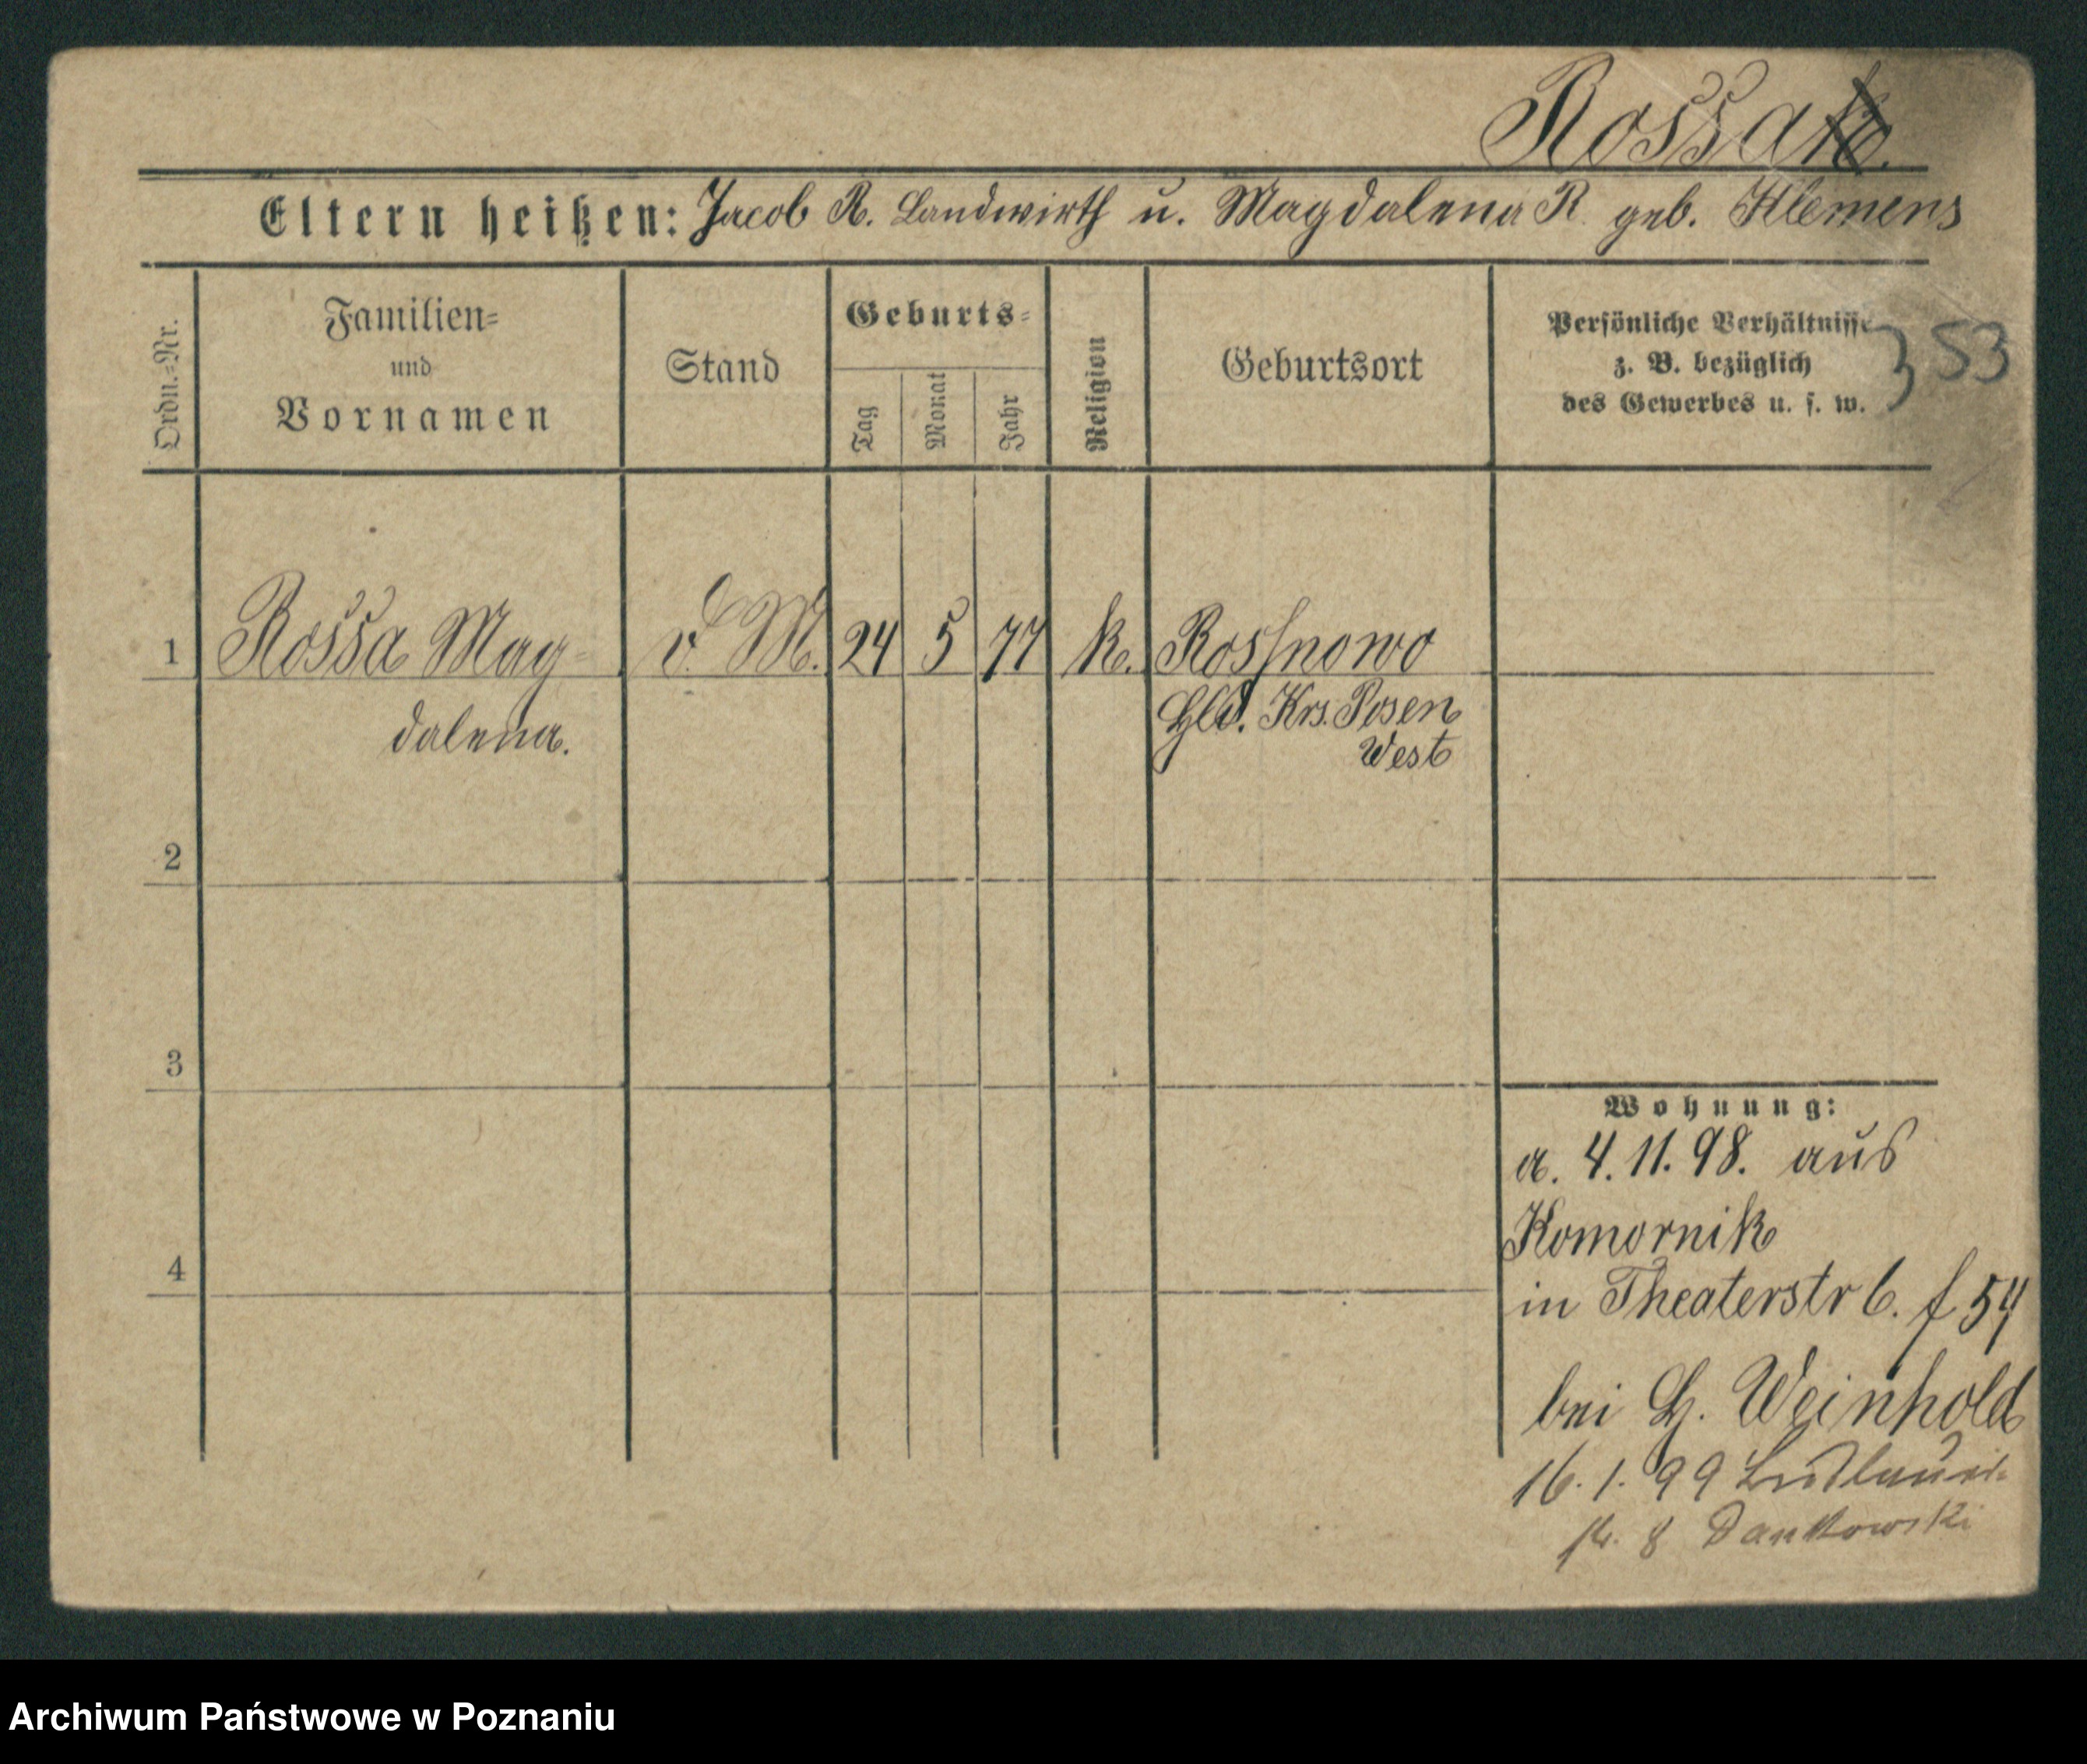 Rossa
Eltern heißen: Jacob R. Landwirth u. Magdalena R. geb. Klemens
Ordn.-Nr.
Familien-
und
Vornamen
Stand
Geburts-
Tag
Monat
Jahr
Religion
Geburtsort
Persönliche Verhältnisse
z. B. bezüglich
des Gewerbes u. s. w.
353
1 Rossa Mag- d. M. 24 5 77 k. Rosnowo
dalena. Hld. Krs. Posen
West
2
3
4
Wohnung:
a. 4. 11. 98. aus
Komornik
in Theaterstr 6. f 54
bei H. Weinhold
16. 1. 99
str. 8 Dankowski
Archiwum Państwowe w Poznaniu